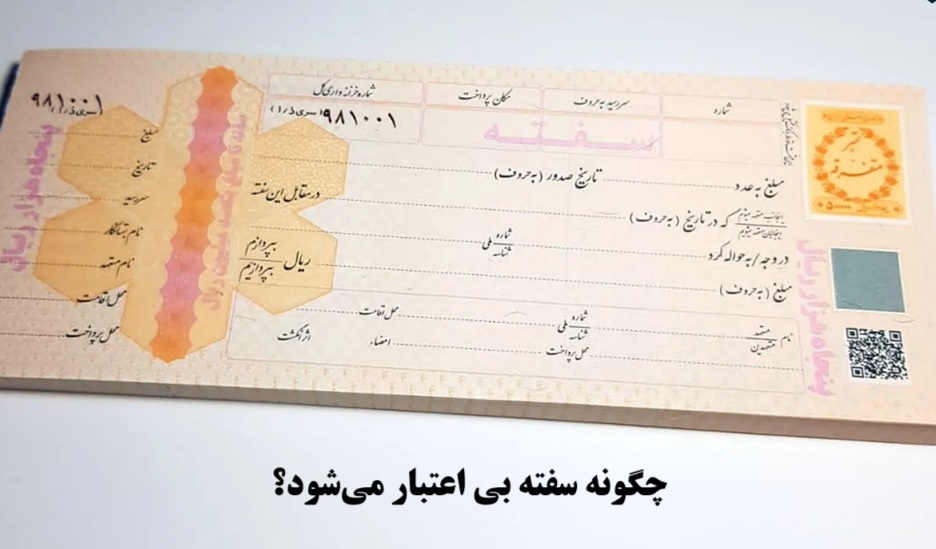 شماره
سررسید به حروف
مکان پرداخت
شماره خزانه داری کل
۹۸۱۰۰۱ (سری ذ/۱)
سفته
مبلغ به عدد
تاریخ صدور (به حروف)
در مقابل این سفته
اینجانب متعهد میشوم
اینجانبان متعهد میشویم
که در تاریخ (به حروف)
در وجه / به حواله کرد
شماره
شناسه
ملی
مبلغ (به حروف)
ریال
بپردازم
بپردازیم
نام
متعهد
متعهدین
شماره
شناسه
ملی
محل اقامت
محل پرداخت
امضاء
اثر انگشت
پنجاه هزار ریال
تمبر
سفته
۹۸۱۰۰۱
(سری ذ/۱)
مبلغ
تاریخ
سررسید
نام بستانکار
نام متعهد
محل اقامت
محل پرداخت
پنجاه هزار ریال
چگونه سفته بی اعتبار می‌شود؟